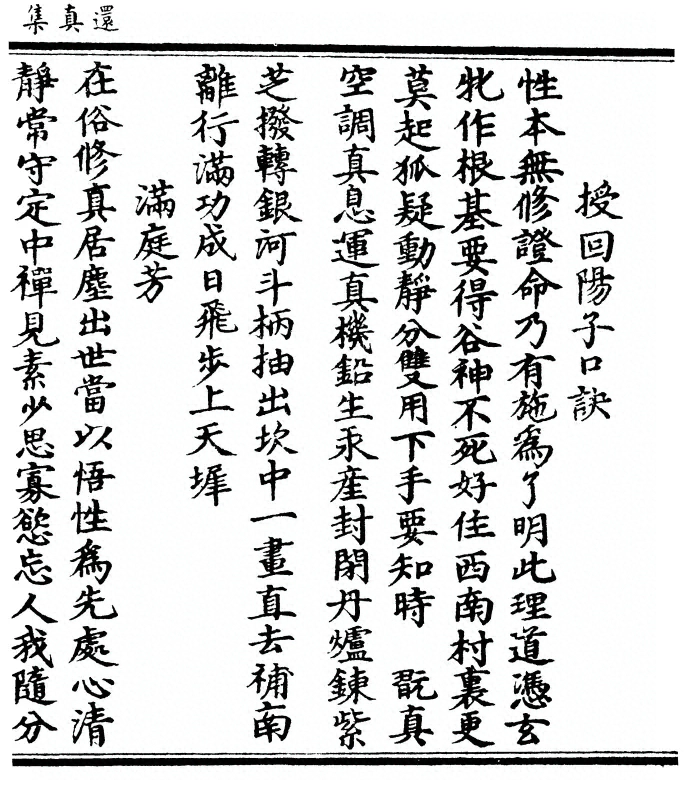 還真集
授回陽子口訣
性本無修證命乃有施為了明此理道憑玄
牝作根基要得谷神不死好住西南村裏更
莫起狐疑動靜分雙用下手要知時　翫真
空調真息運真機鉛生汞產封閉丹爐鍊紫
芝撥轉銀河斗柄抽出坎中一畫直去補南
離行滿功成日飛步上天墀
滿庭芳
在俗修真居塵出世當以悟性為先處心清
靜常守定中禪見素少思寡慾忘人我隨分